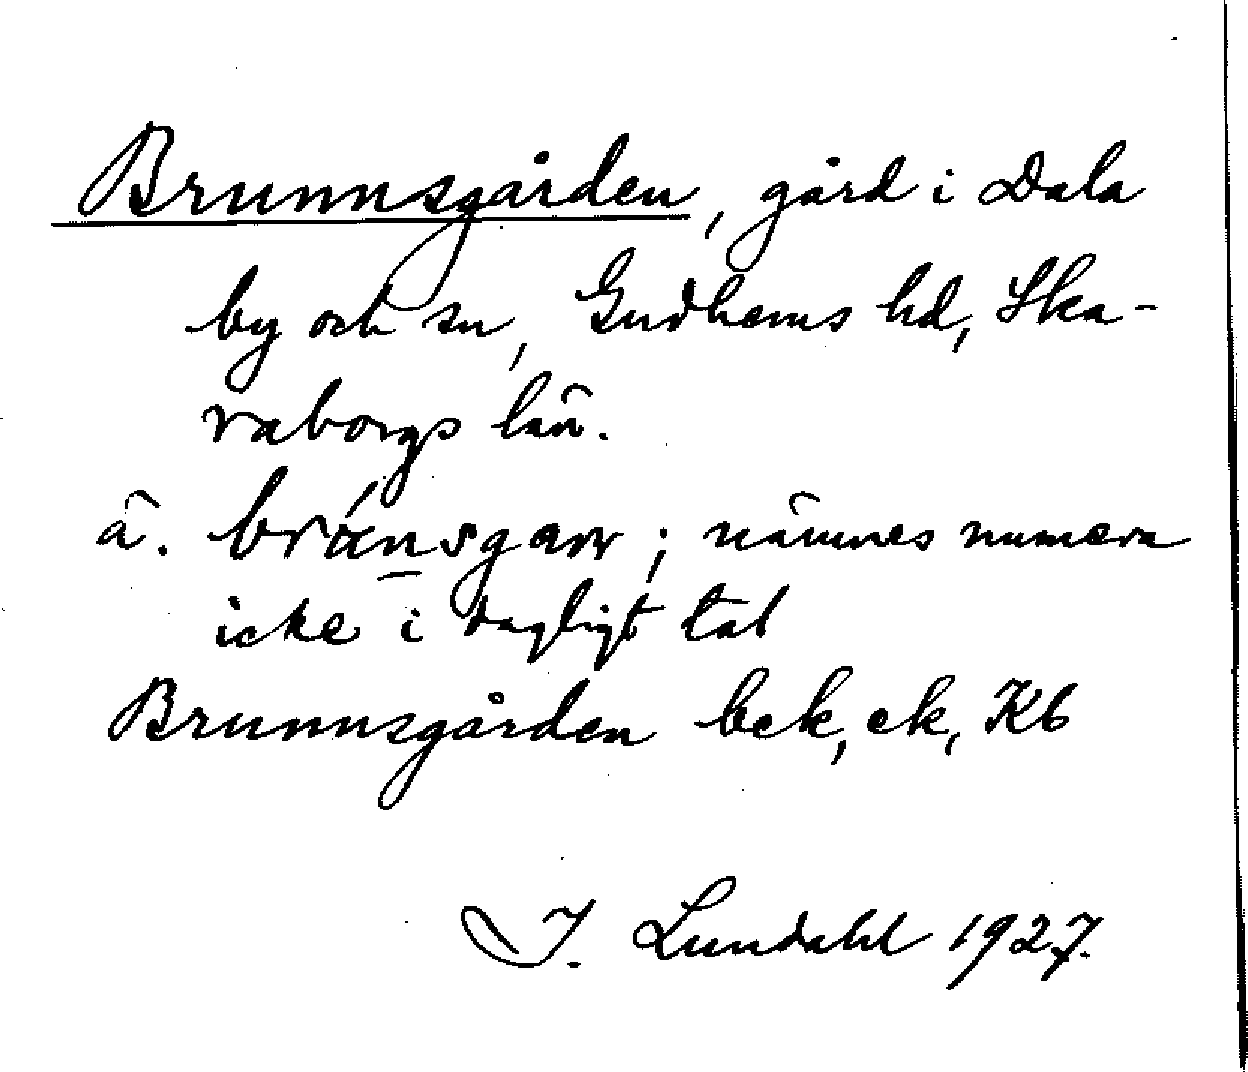 Brunnsgården, gård i Dala
by och sn, Gudhems hd, Ska-
raborgs län.
a. bránsgarr; nämnes numera
icke i dagligt tal
Brunnsgården bek, ek, Kb
I. Lundahl 1927.